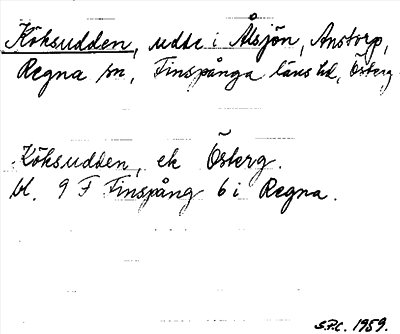 Köksudden, udde i Ålsjön, Anstorp,
Regna sn, Finspånga läns hd, Österg.
Köksudden, ek Österg.
bl. 9 F Finspång 6 i Regna.
S.P.C. 1959.